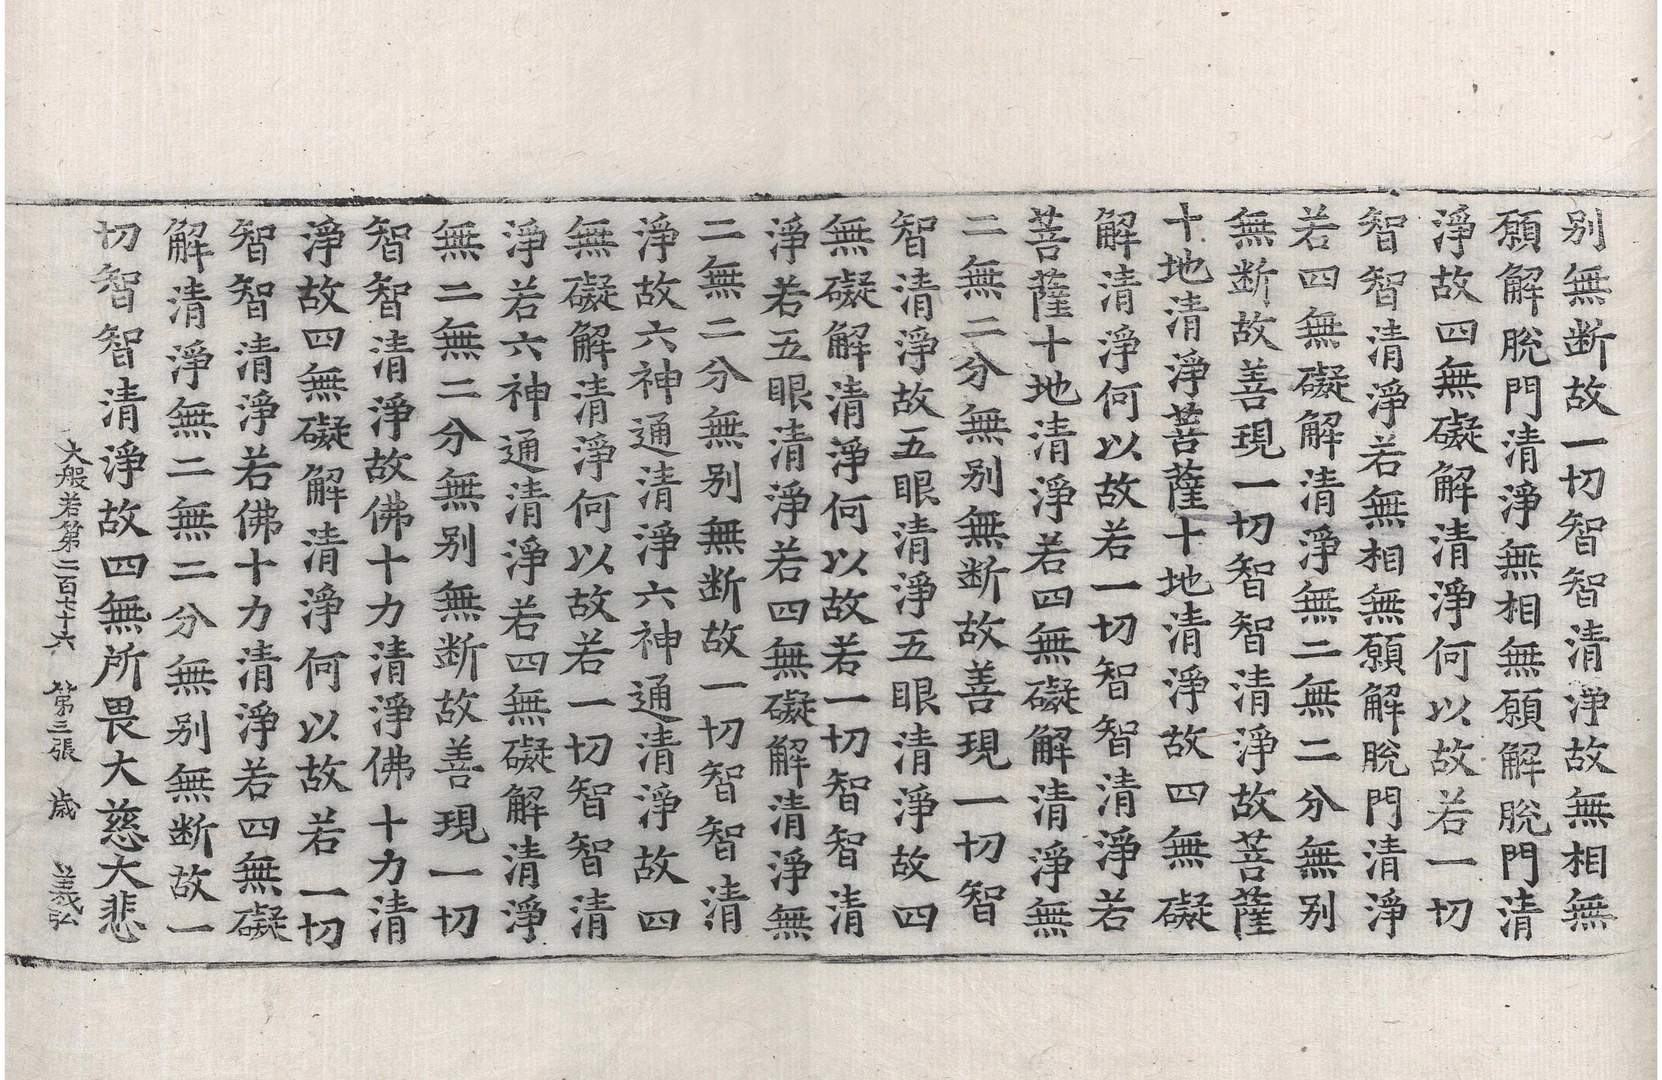 别無断故一切智智清淨故無相無
願解脫門清淨無相無願解脫門清
淨故四無礙解清淨何以故若一切
智智清淨若無相無願解脫門清淨
若四無礙解清淨無二無二分無别
無断故善現一切智智清淨故菩薩
十地清淨菩薩十地清淨故四無礙
解清淨何以故若一切智智清淨若
菩薩十地清淨若四無礙解清淨無
二無二分無别無断故善現一切智
智清淨故五眼清淨五眼清淨故四
無礙解清淨何以故若一切智智清
淨若五眼清淨若四無礙解清淨無
二無二分無别無断故一切智智清
淨故六神通清淨六神通清淨故四
無礙解清淨何以故若一切智智清
淨若六神通清淨若四無礙解清淨
無二無二分無别無断故善現一切
智智清淨故佛十力清淨佛十力清
淨故四無礙解清淨何以故若一切
智智清淨若佛十力清淨若四無礙
解清淨無二無二分無别無断故一
切智智清淨故四無所畏大慈大悲
大般若第二百七十六 第三張 歳 義弘